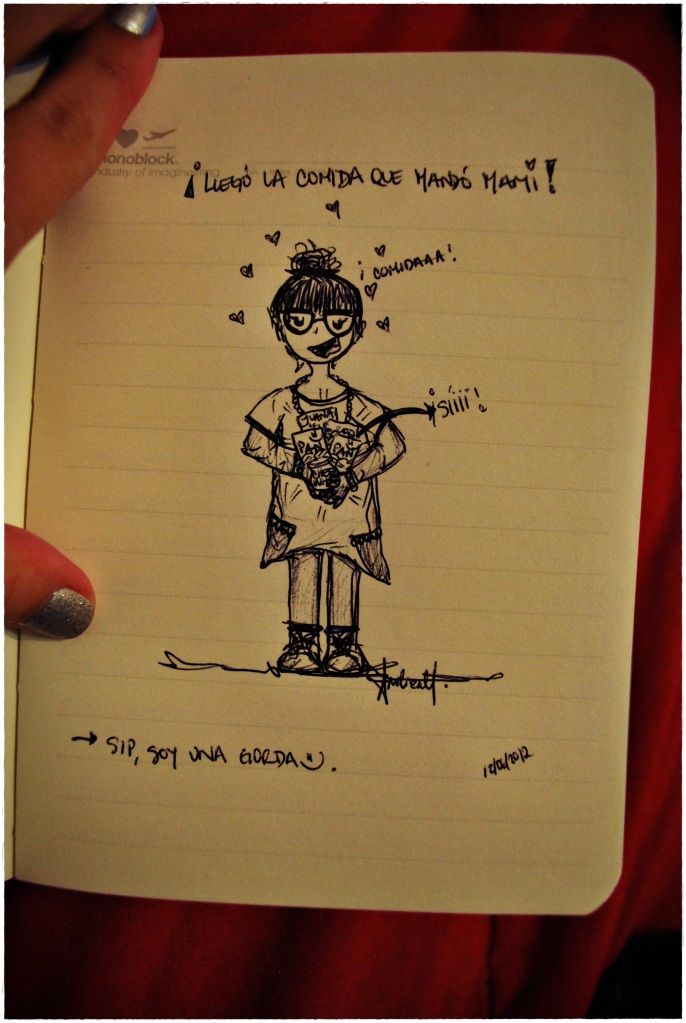 Monoblock.
Industry of Imagineering
¡LLEGÓ LA COMIDA QUE MANDÓ MAMI!
¡COMIDAAA!
¡SÍIII!
JUANA
PAN
PANT
→ SIP, SOY UNA GORDA :).
12/02/2012